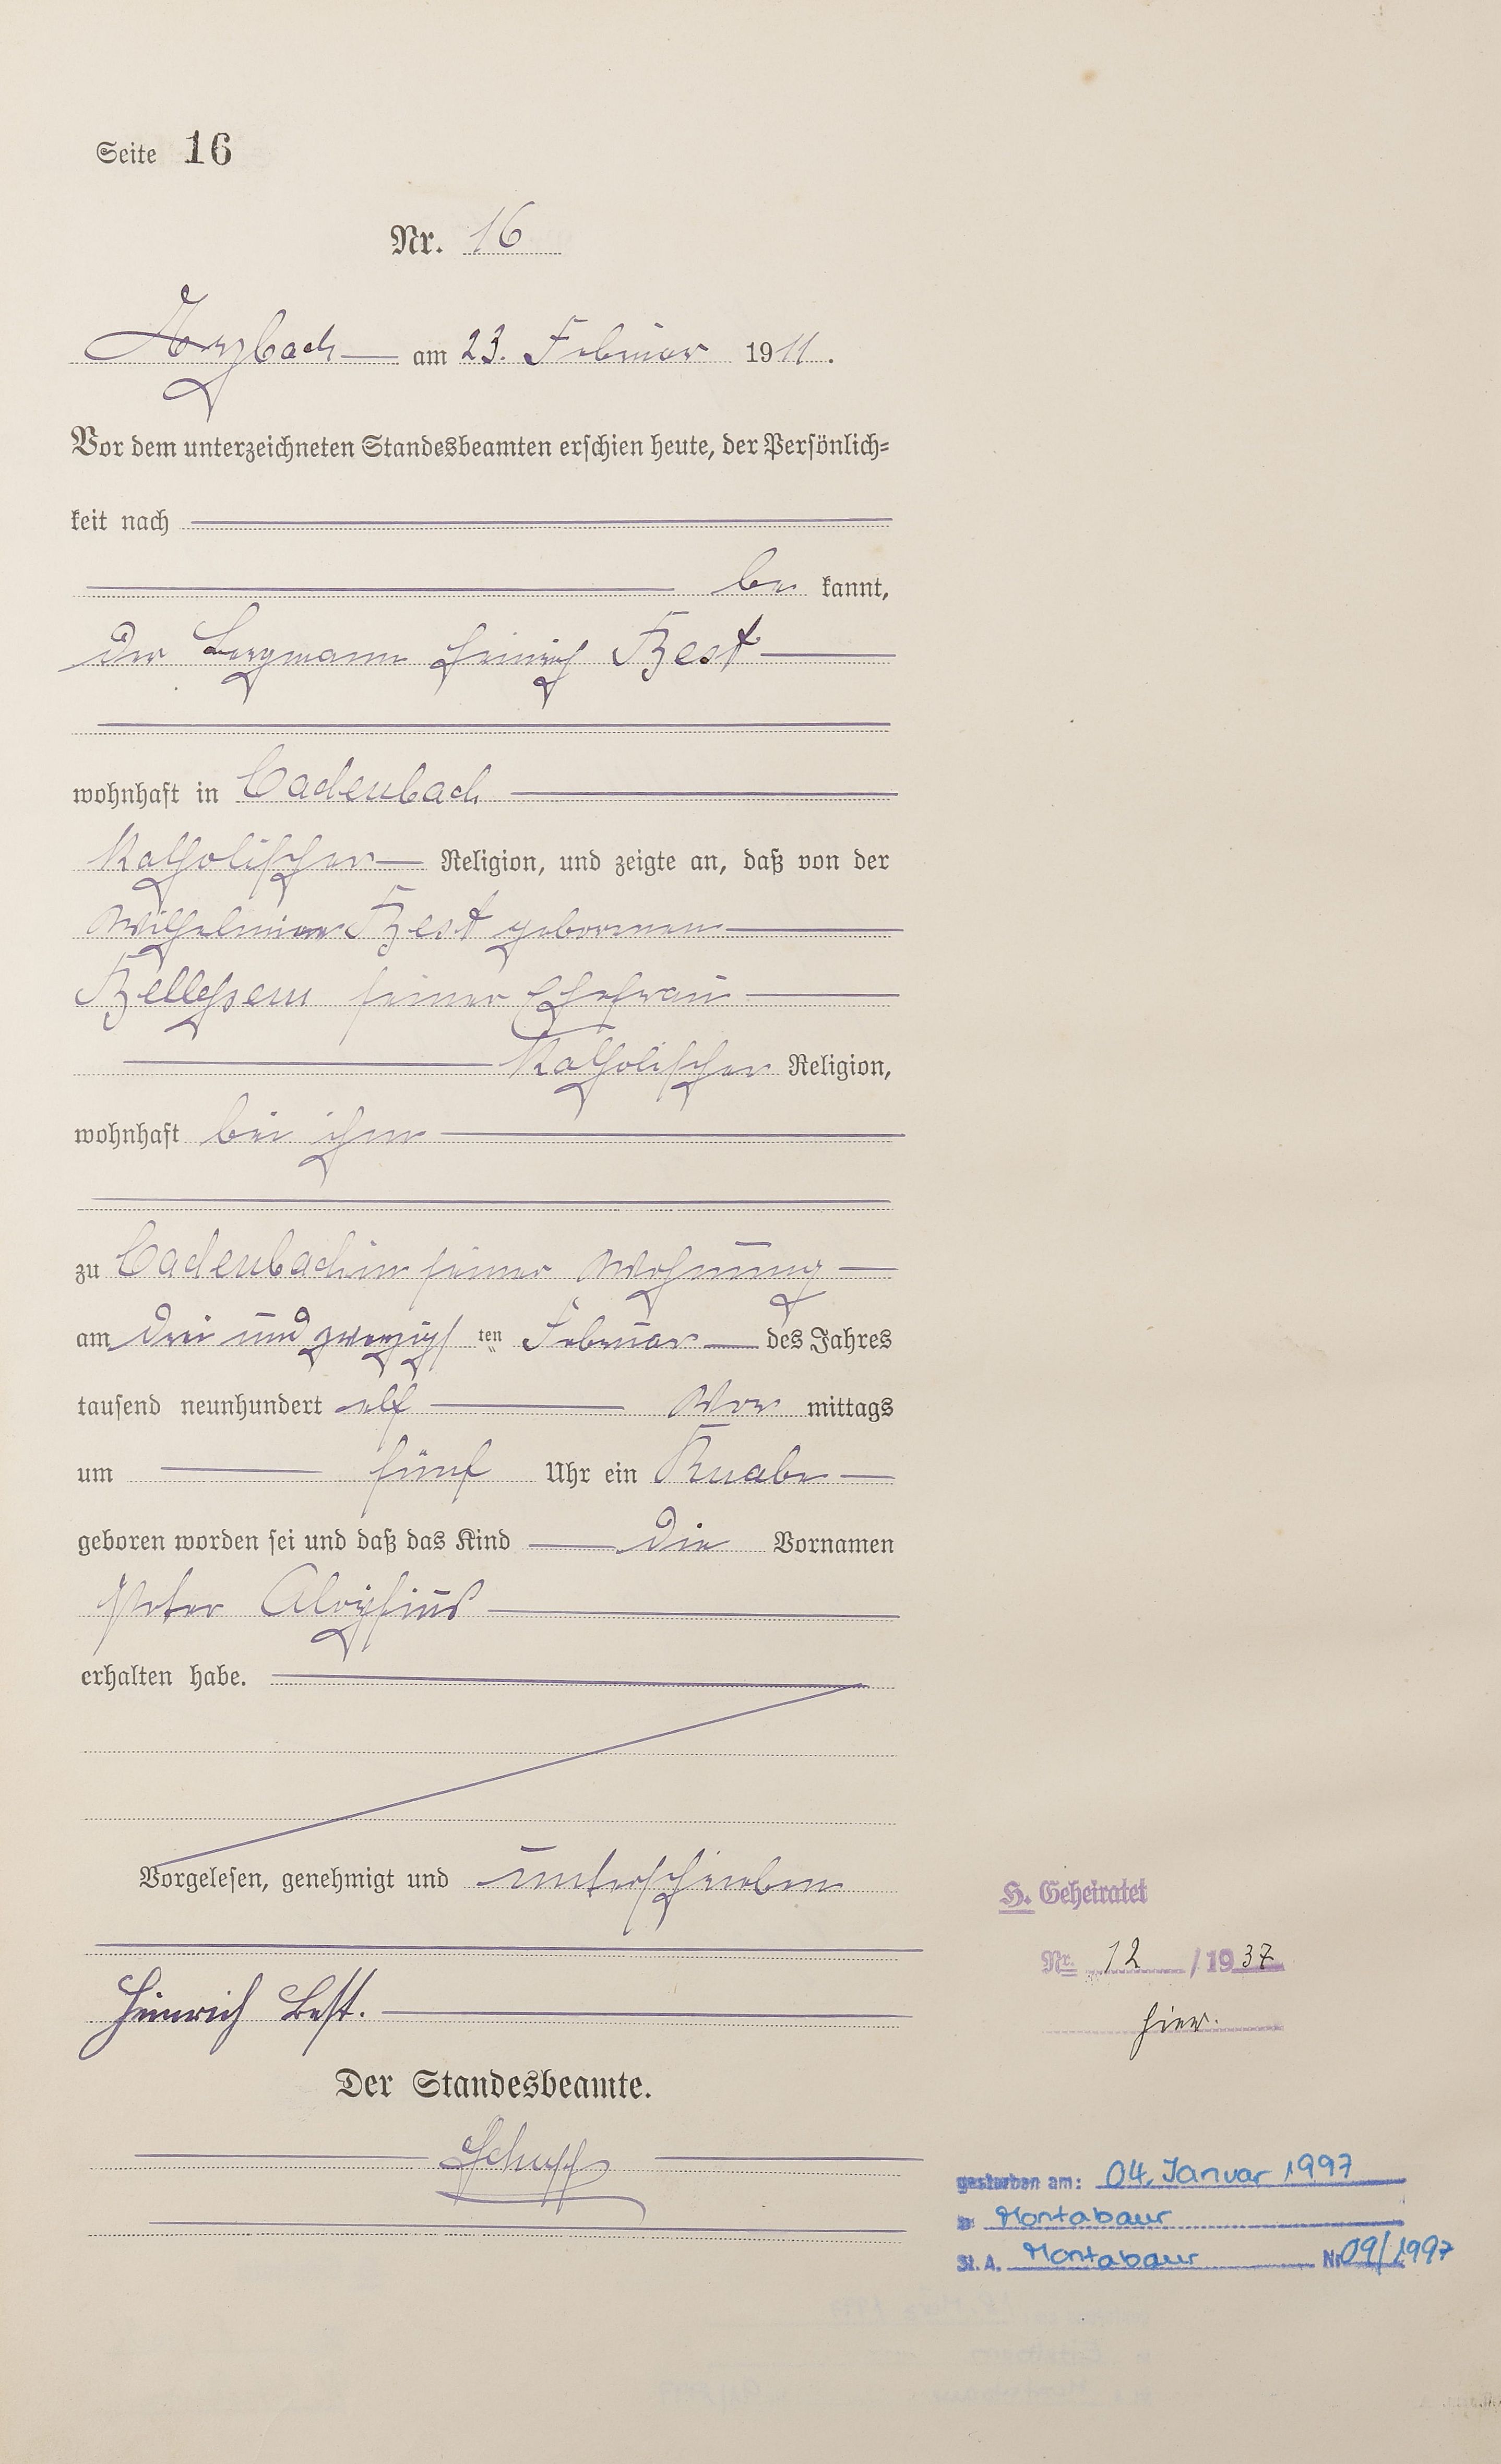 Seite 16
Nr. 16
Arzbach am 23. Februar 1911.
Vor dem unterzeichneten Standesbeamten erschien heute, der Persönlich-
keit nach
be kannt,
der Bergmann Heinrich Best
wohnhaft in Cadenbach
katholischer Religion, und zeigte an, daß von der
Wilhelmine Best geborenen
seiner Ehefrau
katholischer Religion,
wohnhaft bei ihm
zu Cadenbach in seiner Wohnung
am drei und zwanzigsten Februar des Jahres
tausend neunhundert elf Vor mittags
um fünf Uhr ein Knabe
geboren worden sei und daß das Kind die Vornamen
Peter Aloysius
erhalten habe.
Vorgelesen, genehmigt und unterschrieben
Heinrich Best.
Der Standesbeamte.
Schupp
H. Geheiratet
Nr. 12 / 1937
hier.
gestorben am: 04. Januar 1997
in Montabaur
St. A. Montabaur Nr. 09/1997